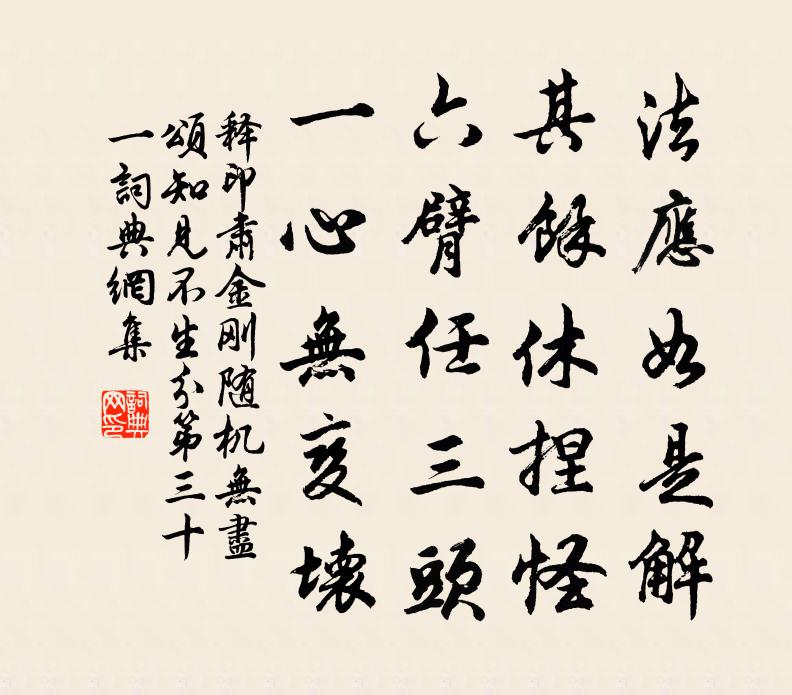 法應如是解
其餘休捏怪
六臂任三頭
一心無变壞
释印肅金刚随机無盡
頌知見不生分第三十
一詞典網集
詞典网印